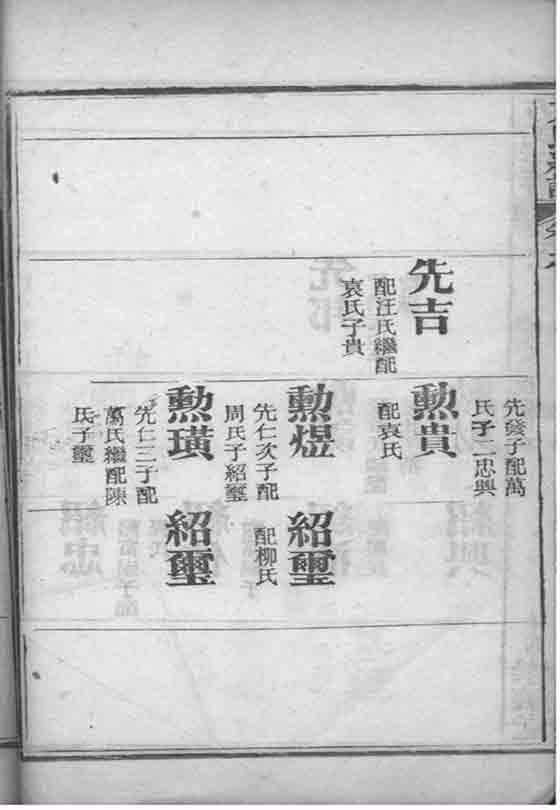 先吉
配汪氏繼配
袁氏子貴
先發子配萬
氏子二忠興
勲貴
配袁氏
勲煜
先仁次子配
周氏子紹璽
勲璜
先仁三子配
萬氏繼配陳
氏子璽
紹璽
配柳氏
紹璽